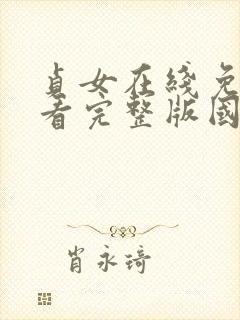 貞女在綫免
看完整版國
肖永琦